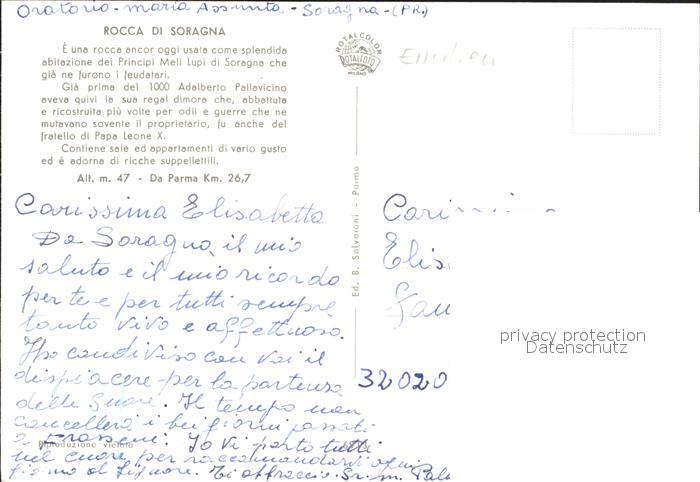 Oratorio - Maria Assunta - Soragna - (PR.)
ROCCA DI SORAGNA
È una rocca ancor oggi usata come splendida
abitazione dei Principi Meli Lupi di Soragna che
già ne furono i feudatari.
Già prima del 1000 Adalberto Pallavicino
aveva quivi la sua regal dimora che, abbattuta
e ricostruita più volte per odii e guerre che ne
mutavano sovente il proprietario, fu anche del
fratello di Papa Leone X.
Contiene sale ed appartamenti di vario gusto
ed è adorna di ricche suppellettili.
Alt. m. 47 - Da Parma Km. 26,7
Carissima Elisabetta
Da Soragna, il mio
saluto e il mio ricordo
per te e per tutti sempre
tanto vivo e affettuoso.
Ho condiviso con voi il
dispiacere per la partenza
delle Suore. Il tempo non
cancellerà i bei giorni passati
a Frassenè. Io vi porto tutti
nel cuore per raccomandarvi ogni
giorno al Signore. Ti abbraccio. Sr. m.
Riproduzione vietata
Ed. B. Salvarani - Parma
ROTALCOLOR
ROTALFOTO
MILANO
Emilien
Carissima
Elis
32020
privacy protection
Datenschutz